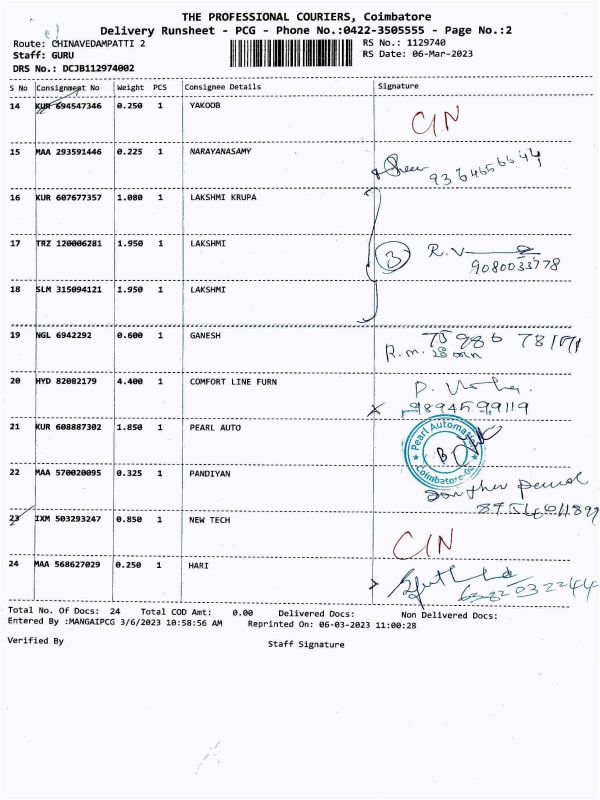 THE PROFESSIONAL COURIERS, Coimbatore
Delivery Runsheet - PCG - Phone No.:0422-3505555 - Page No.:2
Route: CHINAVEDAMPATTI 2
RS No.: 1129740
Staff: GURU
RS Date: 06-Mar-2023
DRS No.: DCJB112974002
S No Consignment No Weight PCS Consignee Details Signature
14 KUR 694547346 0.250 1 YAKOOB
15 MAA 293591446 0.225 1 NARAYANASAMY
16 KUR 607677357 1.080 1 LAKSHMI KRUPA
17 TRZ 120006281 1.950 1 LAKSHMI 3 R.V
9080033778
18 SLM 315094121 1.950 1 LAKSHMI
19 NGL 6942292 0.600 1 GANESH
20 HYD 82082179 4.400 1 COMFORT LINE FURN
9894599119
21 KUR 608887302 1.850 1 PEARL AUTO
Pearl Automation
22 MAA 570020095 0.325 1 PANDIYAN
23 IXM 503293247 0.850 1 NEW TECH
24 MAA 568627029 0.250 1 HARI
6382032244
Total No. Of Docs: 24 Total COD Amt: 0.00 Delivered Docs: Non Delivered Docs:
Entered By :MANGAIPCG 3/6/2023 10:58:56 AM Reprinted On: 06-03-2023 11:00:28
Verified By
Staff Signature